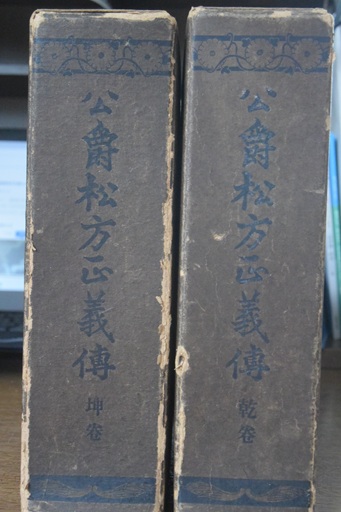 公爵松方正義傳
乾卷
公爵松方正義傳
坤卷